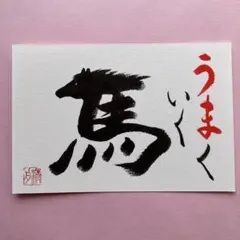 うまく
いく
馬